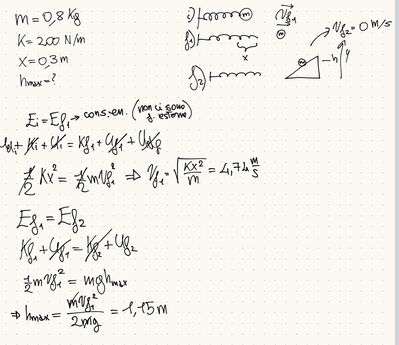 m = 0,8 Kg
K = 200 N/m
x = 0,3 m
hmax = ?
i) m Vf1
f1) x m
f2) m h y Vf2 = 0 m/s
Ei = Ef1 → cons. en. (non ci sono f. esterne)
+ Ki + Ui = Kf1 + Uf1 +
1/2 Kx² = 1/2 mVf1² ⇒ Vf1 = √(Kx²/m) = 4,74 m/s
Ef1 = Ef2
Kf1 + Uf1 = Kf2 + Uf2
1/2 mVf1² = mghmax
⇒ hmax = mVf1²/2mg = 1,15 m